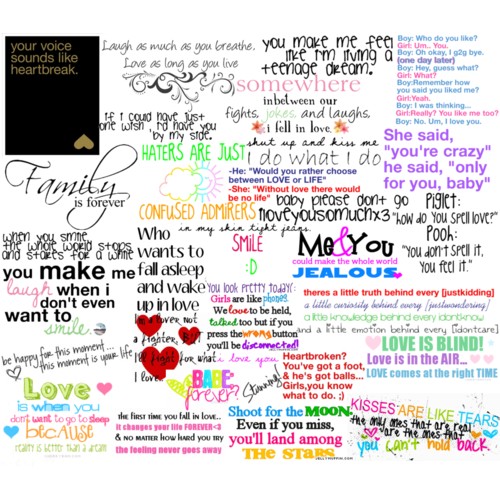 your voice
sounds like
heartbreak.
Laugh as much as you breathe.
Love as long as you live
you make me feel
like i'm living a
teenage dream.
Boy: Who do you like?
Girl: Um.. You.
Boy: Oh okay, I g2g bye.
(one day later)
Boy: Hey, guess what?
Girl: What?
Boy:Remember how
said you liked me?
Girl:Yeah.
Boy: I was thinking...
Girl:Really? You like me too?
Boy: No. Um, I love you.
somewhere
inbetween our
fights, jokes, and laughs,
i fell in love.
if i could have just
one wish, i'd have you
by my side.
shut up and kiss me
i do what i do
HATERS ARE JUST
CONFUSED ADMIRERS
She said,
"you're crazy"
he said, "only
for you, baby"
Family
is forever
-He: "Would you rather choose
between LOVE or LIFE"
-She: "Without love there would
be no life"
baby please don't go
iloveyousomuchx3
in my skin tight jeans
Piglet:
"how do you spell love?"
Pooh:
"You don't spell it,
You feel it."
when you smile
the whole world stops
and stares for a while
Who
wants to
fall asleep
and wake
up in love
SMILE
:D
Me&You
could make the whole world
JEALOUS.
you make me
laugh when i
don't even
want to
smile
you look pretty today!
Girls are like phones.
We love to be held,
talked too but if you
press the wrong button
you'll be disconnected!
theres a little truth behind every [justkidding]
a little curiosity behind every [justwondering]
a little knowledge behind every idontknow
and a little emotion behind every [idontcare]
I'm a lover, not
a fighter, but
I'll fight for what
I love
i love you
LOVE IS BLIND!
Love is in the AIR...
LOVE comes at the right TIME
be happy for this moment...
this moment is your life
BABE
forever?
Stunning!
Heartbroken?
You've got a foot,
& he's got balls...
Girls,you know
what to do. ;)
Love
is when you
don't want to go to sleep
because
reality is better than a dream
the first time you fall in love...
it changes your life FOREVER<3
& no matter how hard you my
the feeling never goes away
Shoot for the MOON!
Even if you miss,
you'll land among
THE STARS
KISSES ARE LIKE TEARS
the only ones that are real
are the ones that
you can't hold back.